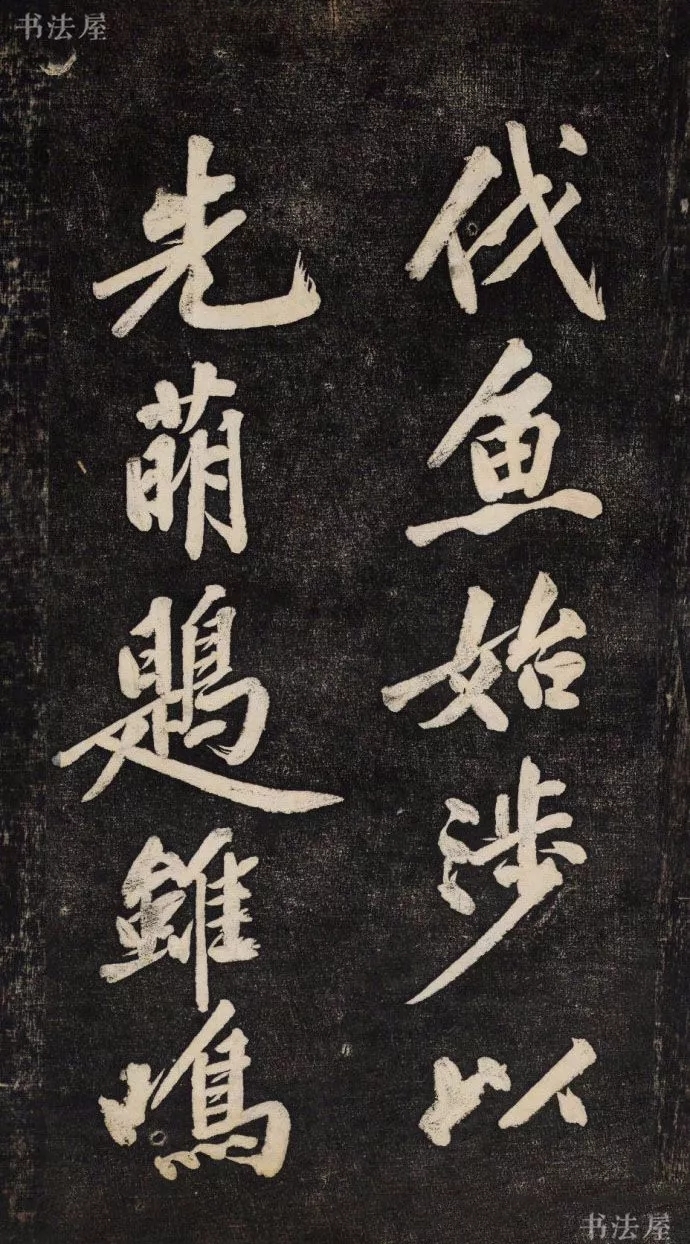 书法屋
伐鱼始涉以
先萌鶗雖鳴
书法屋